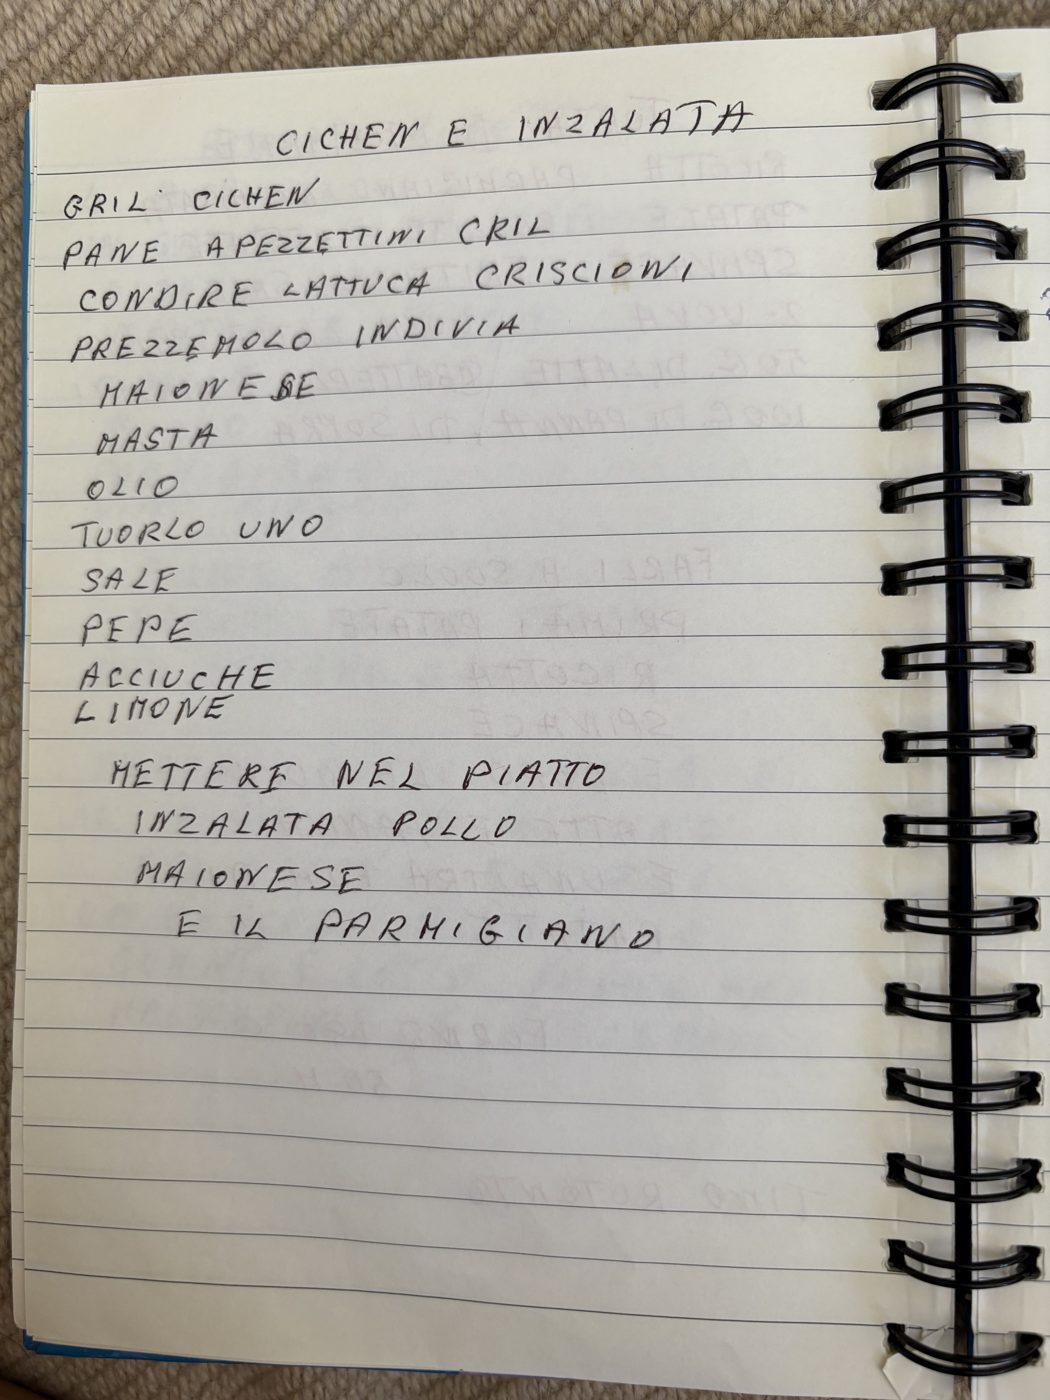 CICHEN E INZALATA
GRIL CICHEN
PANE A PEZZETTINI CRIL
CONDIRE LATTUCA CRISCIONI
PREZZEMOLO INDIVIA
MAIONESE
MASTA
OLIO
TUORLO UNO
SALE
PEPE
ACCIUCHE
LIMONE
METTERE NEL PIATTO
INZALATA POLLO
MAIONESE
E IL PARMIGIANO